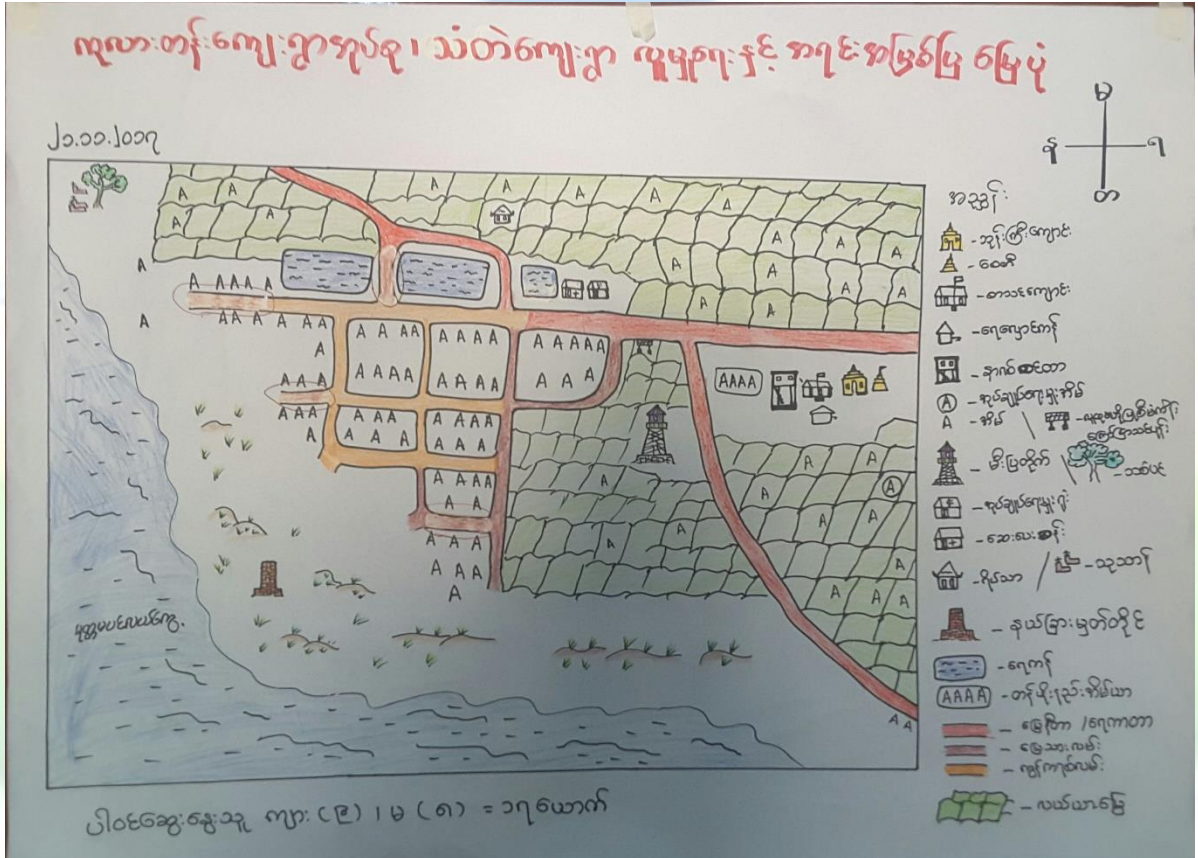 ကုလားတန်ကျေးရွာအုပ်စု၊ သံတဲကျေးရွာ လူမှုရေးနှင့် အရင်းအမြစ်ပြ မြေပုံ
၂၁.၁၁.၂၀၁၇
မ
န ရ
တ
အညွှန်း
- ဘုန်းကြီးကျောင်း
- စေတီ
- စာသင်ကျောင်း
- ရေလှောင်ကန်
Ⓐ - အုပ်ချုပ်ရေးမှူးအိမ်
A - အိမ်
- မီးပြတိုက်
- သစ်ပင်
- အုပ်ချုပ်ရေးမှူးရုံး
- ဆေးပေးခန်း
- ဇိုးသာ / - သုသာန်
- နယ်ခြားမှတ်တိုင်
- ရေကန်
AAAA - တန်ဖိုးနည်းအိမ်ယာ
- မြေနီတာ / ရေကာတာ
- မြေသားလမ်း
- ကွန်ကရစ်လမ်း
- လယ်ယာမြေ
မုတ္တမပင်လယ်ကွေ့
ပါဝင်ဆွေးနွေးသူ ကျား (၉) ၊ မ (၈) = ၁၇ယောက်